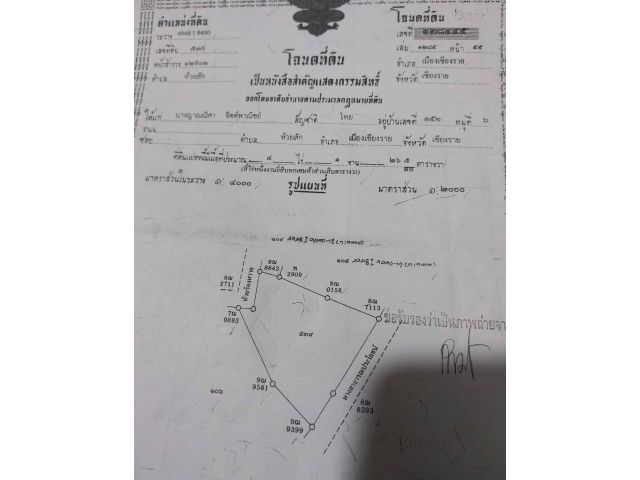 ตำแหน่งที่ดิน
ระวาง 4948 I 9490
เลขที่ดิน ๕๓๙
หน้าสำรวจ ๑๒๙๐๓
ตำบล ห้วยสัก
โฉนดที่ดิน
เลขที่ ๑๒๘๔๔๕
เล่ม ๑๒๘๕ หน้า ๔๕
อำเภอ เมืองเชียงราย
จังหวัด เชียงราย
โฉนดที่ดิน
เป็นหนังสือสำคัญแสดงกรรมสิทธิ์
ออกโดยอาศัยอำนาจตามประมวลกฎหมายที่ดิน
ให้แก่ สัญชาติ ไทย อยู่บ้านเลขที่ ๑๕๒ หมู่ที่ ๖
ถนน
ซอย ตำบล ห้วยสัก อำเภอ เมืองเชียงราย จังหวัด เชียงราย
ที่ดินแปลงนี้มีเนื้อที่ประมาณ ๔ ไร่ ๑ งาน ตารางวา
มาตราส่วนในระวาง ๑: ๔๐๐๐
รูปแผนที่
มาตราส่วน ๑: ๒๐๐๐
๑๐๕
8ฌ
2711
9ฌ
8843
2909
8ฌ
0158
8ฌ
7113
7ณ
9893
๕๓๙
ทางสาธารณประโยชน์
ขอรับรองว่าเป็นภาพถ่ายจาก
๑๐๖
9ฌ
9561
8ฌ
6393
9ฌ
9399